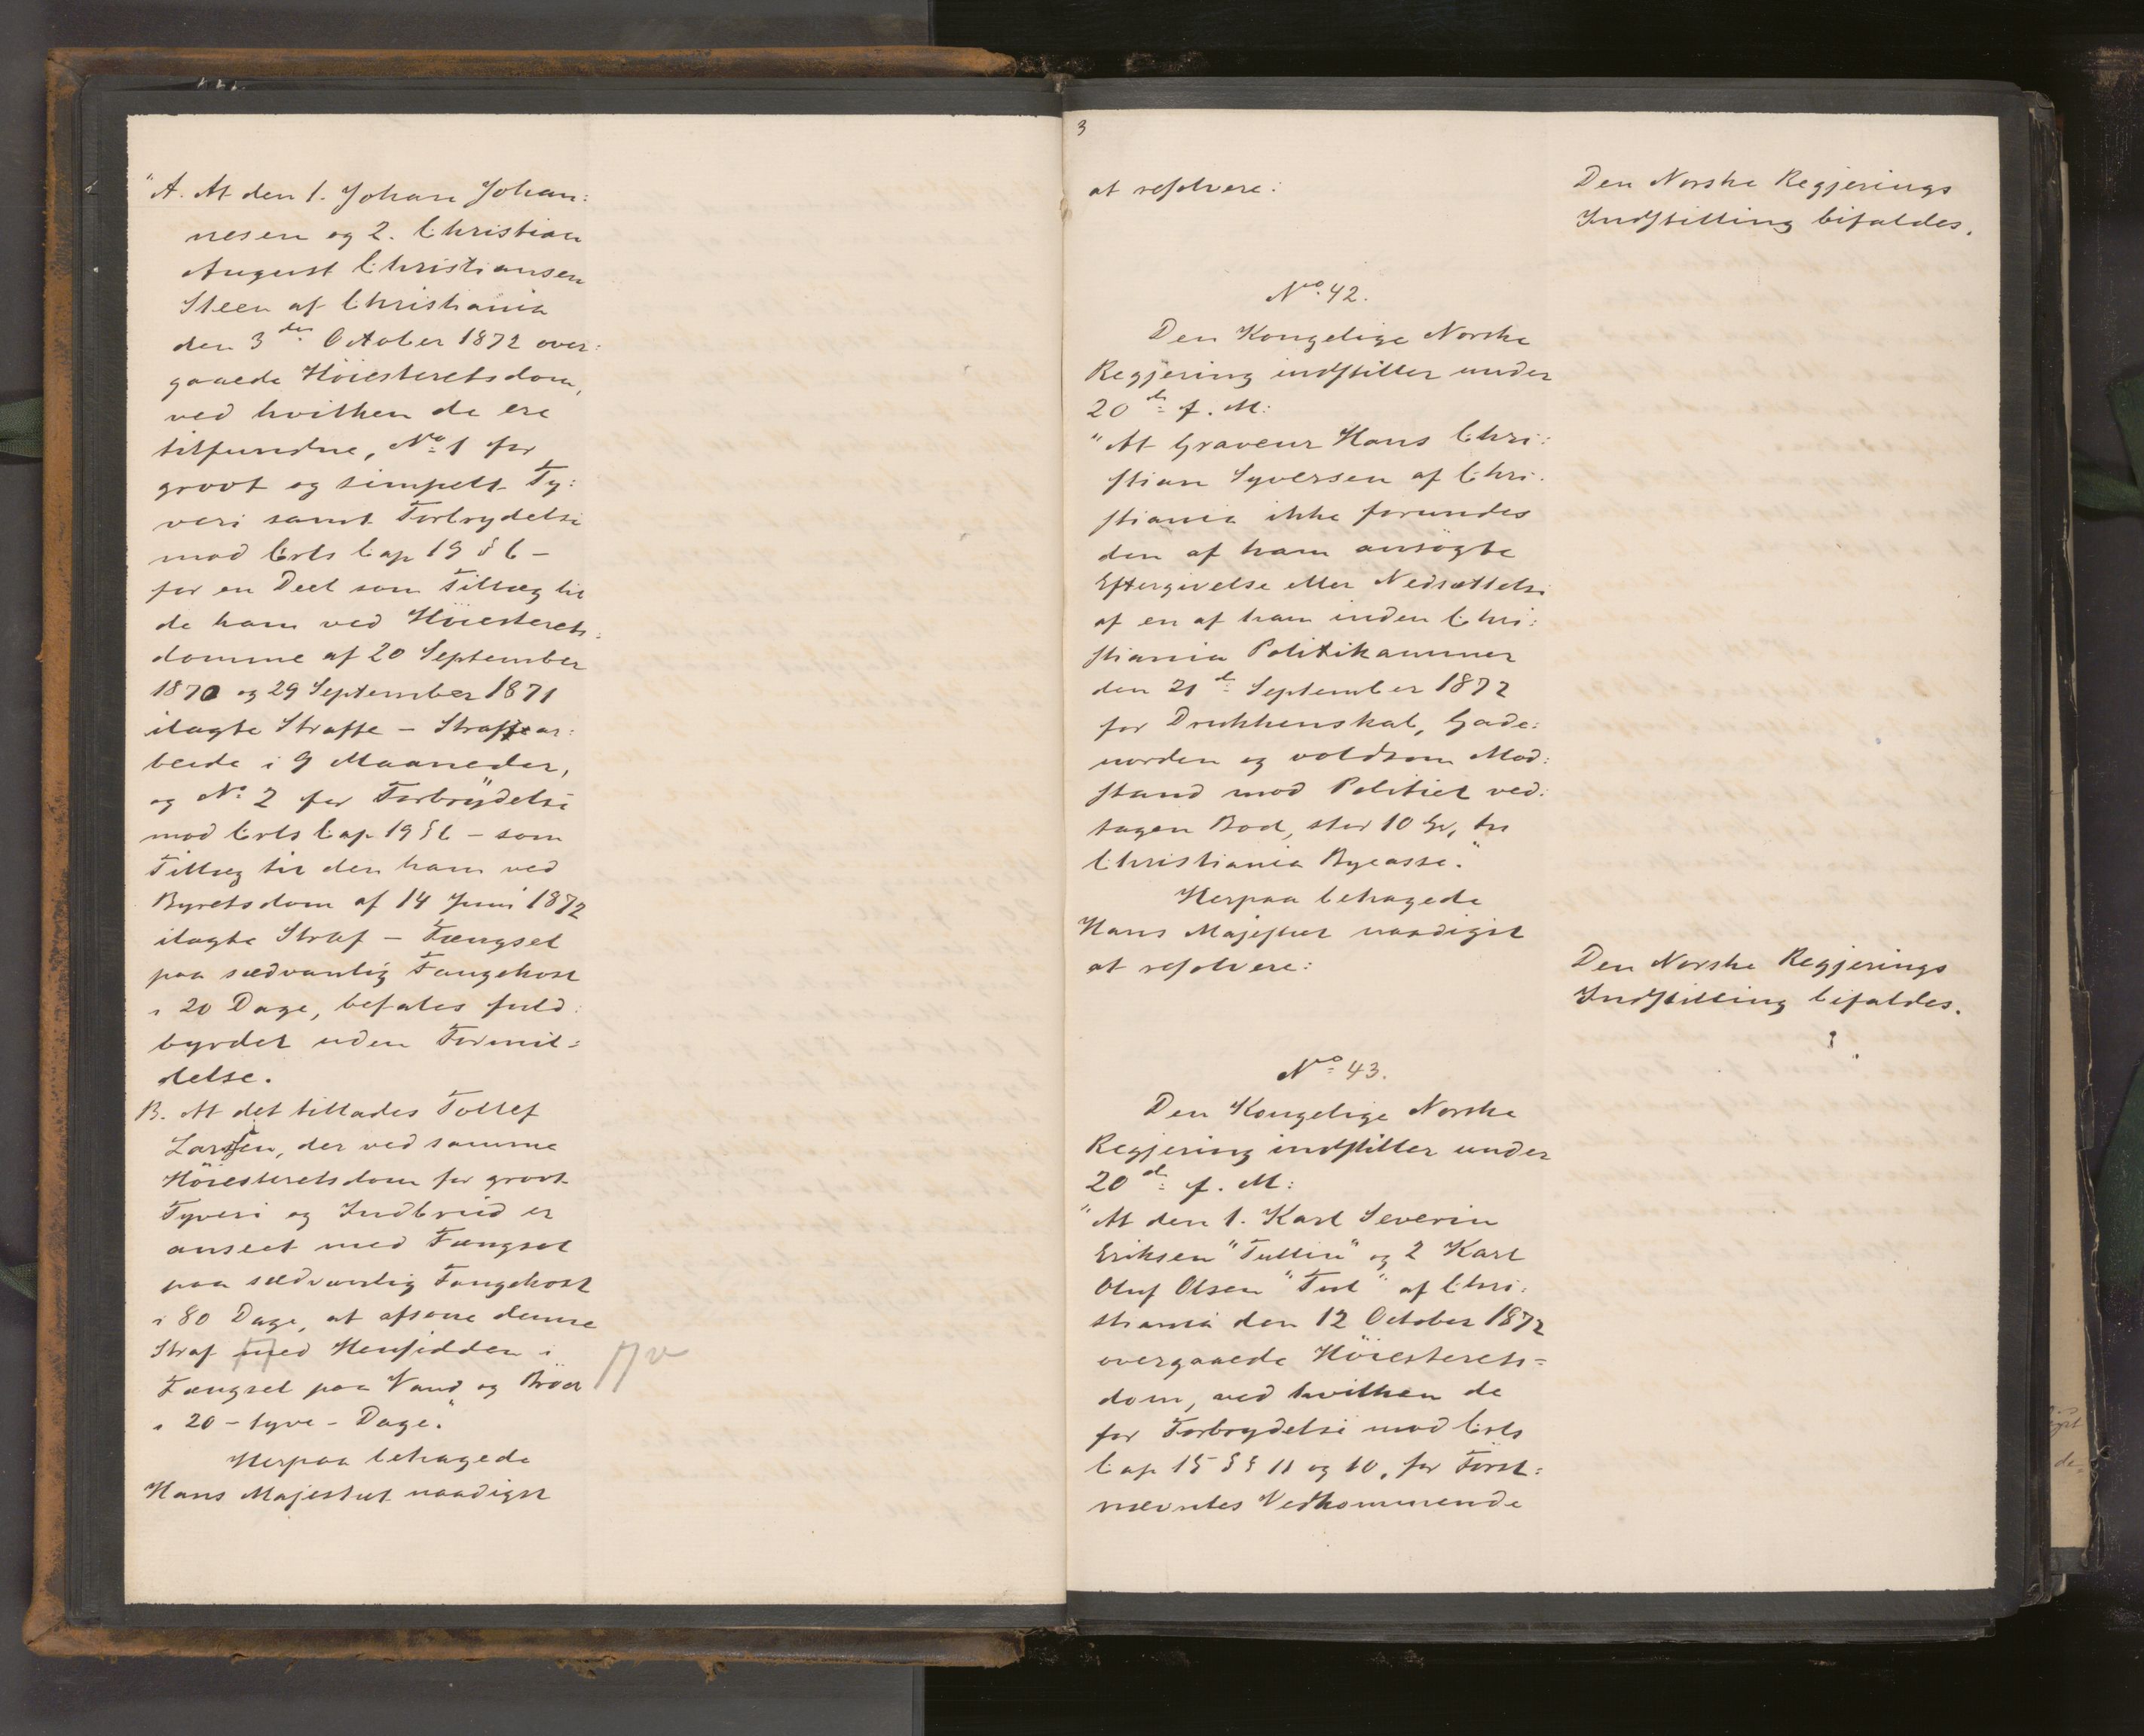 "A. At den 1. Johan Johan:
nesen og 2. Christian
August Christiansen
Steen af Christiania
den 3die October 1872 over:
gaaede Höiesteretsdom,
ved hvilken de ere
tilfundne, No 1 for
grovt og simpelt Ty:
veri samt Forbrydelse
mod Crls Cap 19 § 6 –
for en Deel som Tillæg til
de ham ved Höiesterets:
domme af 20 September
1870 og 29 September 1871
ilagte Straffe – Strafar:
beide i 9 Maaneder,
og No 2 for Forbrydelse
mod Crls Cap 19 § 6 – som
Tillæg til den ham ved
Byretsdom af 14 Juni 1872
ilagte Straf – Fængsel
paa sædvanlig Fangekost
i 20 Dage, befales fuld:
byrdet uden Formil=
delse.
B. At det tillades Tollef
Larsen, der ved samme
Höiesteretsdom for grovt
Tyveri og Indbrud er
anseet med Fængsel
paa sædvanlig Fangekost
i 80 Dage, at afsone denne
Straf med Hensidden i
Fængsel paa Vand og Bröd
i 20 – tyve – Dage."
Herpaa behagede
Hans Majestæt naadigst
3
at resolvere:
Den Norske Regjerings
Indstilling bifaldes.
No 42.
Den Kongelige Norske
Regjering indstiller under
20de f. M:
"At Graveur Hans Chri:
stian Syversen af Chri:
stiania ikke forundes
den af ham ansögte
Eftergivelse eller Nedsættelse
af en af ham inden Chri:
stiania Politikammer
den 21de September 1872
for Drukkenskab, Gade:
uorden og voldsom Mod:
stand mod Politiet ved:
tagen Bod, stor 10 Spd, til
Christiania Bycasse."
Herpaa behagede
Hans Majestæt naadigst
at resolvere:
Den Norske Regjerings
Indstilling bifaldes.
No 43.
Den Kongelige Norske
Regjering indstiller under
20de f. M:
"At den 1. Karl Severin
Eriksen "Tullin" og 2 Karl
Oluf Olsen af Chri:
stiania den 12 October 1872
overgaaede Höiesterets=
dom, ved hvilken de
for Forbrydelse mod Crls
Cap 15 §§ 11 og 10, for Först:
nævntes Vedkommende